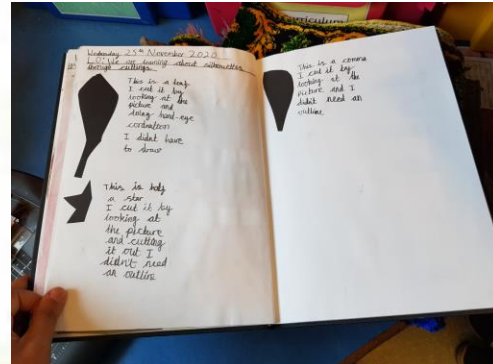 Curriculum
Wednesday 25th November 2020
L.O: We are learning about silhouettes
through cuttings.
This is a leaf
I cut it by
looking at the
picture and
doing hand-eye
cordnation
I didnt have
to draw
This is half
a star
I cut it by
looking at
the picture
and cutting
it out I
didn't need
an outline
This is a comma
I cut it by
looking at the
picture and I
didnt need an
outline